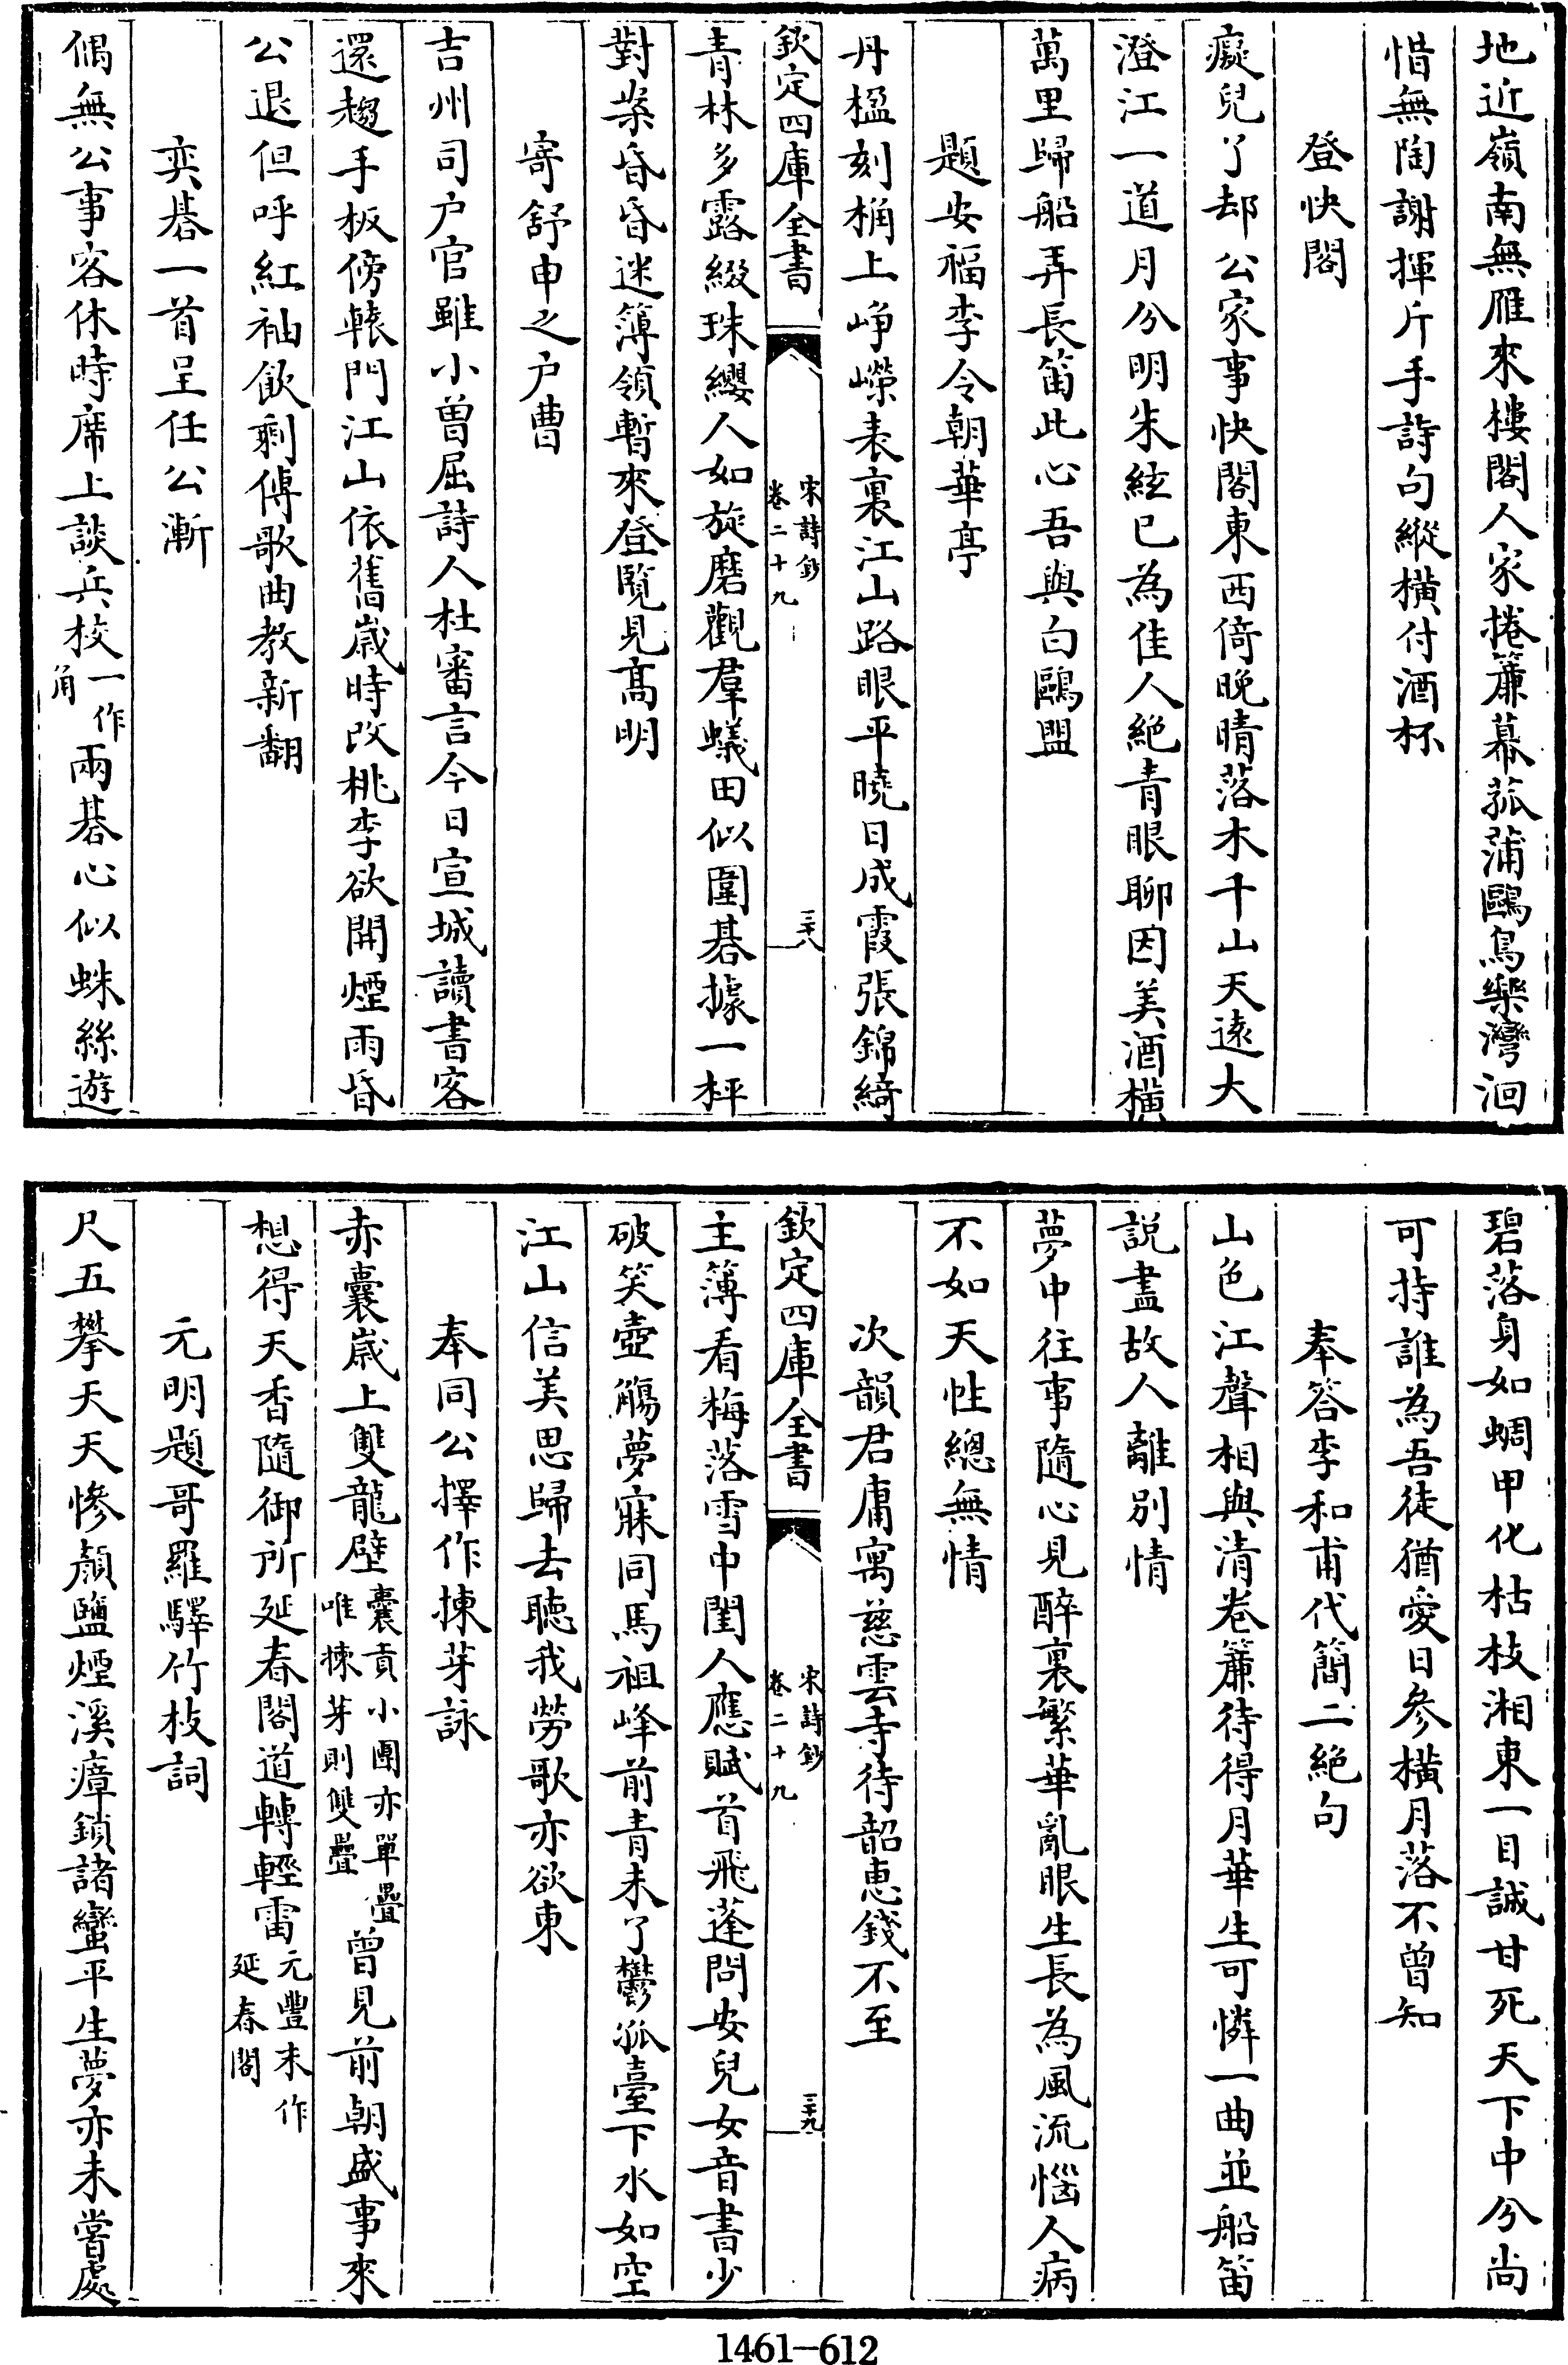 地近嶺南無雁來樓閣人家捲簾幕菰蒲鷗鳥樂灣洄
惜無陶謝揮斤手詩句縱橫付酒杯
登快閣
癡兒了却公家事快閣東西倚晚晴落木千山天遠大
澄江一道月分明朱絃已為佳人絶青眼聊因美酒橫
萬里歸船弄長笛此心吾與白鷗盟
題安福李令朝華亭
丹楹刻桷上崢嶸表裏江山路眼平曉日成霞張錦綺
欽定四庫全書
宋詩鈔
卷二十九
三十八
青林多露綴珠纓人如旋磨觀羣蟻田似圍碁據一枰
對案昏昏迷簿領暫來登覽見髙明
寄舒申之户曹
吉州司户官雖小曾屈詩人杜審言今日宣城讀書客
還趨手板傍轅門江山依舊嵗時改桃李欲開煙雨昏
公退但呼紅袖飲剩傳歌曲教新翻
奕碁一首呈任公漸
偶無公事客休時席上談兵校一作角兩碁心似蛛絲遊
碧落身如蜩甲化枯枝湘東一目誠甘死天下中分尚
可持誰為吾徒猶愛日參橫月落不曾知
奉答李和甫代簡二絶句
山色江聲相與清卷簾待得月華生可憐一曲並船笛
説盡故人離别情
夢中往事隨心見醉裏繁華亂眼生長為風流惱人病
不如天性總無情
次韻君庸寓慈雲寺待韶惠錢不至
欽定四庫全書
宋詩鈔
卷二十九
三十九
主簿看梅落雪中閨人應賦首飛蓬問安兒女音書少
破笑壺觴夢寐同馬祖峰前青未了鬱孤臺下水如空
江山信美思歸去聽我勞歌亦欲東
奉同公擇作揀芽詠
赤囊嵗上雙龍壁囊貢小團亦單疊唯揀芽則雙疊曾見前朝盛事來
想得天香隨御所延春閣道轉輕雷元豐末作延春閣
元明題哥羅驛竹枝詞
尺五攀天天慘顔鹽煙溪瘴鎖諸蠻平生夢亦未嘗處
1461-612